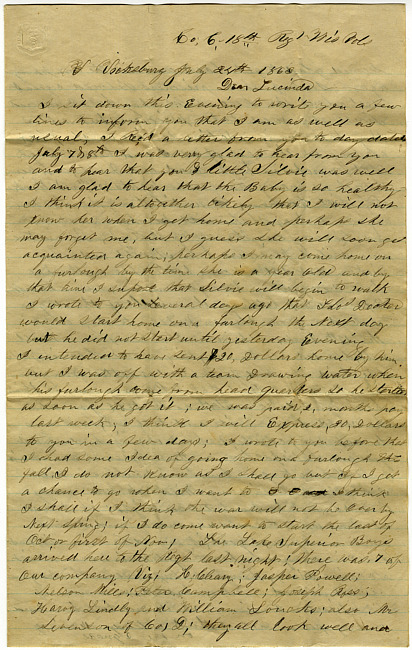 Co. C, 18th Regt Wis Vols
Vicksburg July 24th 1863
Dear Lucinda
I sit down this Evening to write you a few
lines to inform you that I am as well as
usual, I got a letter from you to day dated
July 7 & 8th I was very glad to hear from you
and to hear that you & little Silvie was well
I am glad to hear that the Baby is so healthy
I think it is altogether likely that I will not
know her when I get home and perhaps she
may forget me, but I guess she will soon get
acquainted again; perhaps I may come home on
a furlough by the time she is a year old and by
that time I supose that Silvie will begin to walk
I wrote to you several days ago that Doctor
would start home on a furlough the Next day
but he did not start until yesterday Evening
I intended to have sent 20, Dollars home by him
but I was off with a team Drawing water when
his furlough come from head quarters so he started
as soon as he got it; we was paid 2, months pay
last week; I think I will Express 20, Dollars
to you in a few days; I wrote to you before that
I had some Idea of going home on a furlough this
fall I do not know as I shall go but if I get
a chance to go when I want to I think
I shall if I think the war will not be over by
Next Spring; if I do come want to start the last of
Oct or first of Nov; The Lake Superior Boys
arrived here to the Regt last night; there was 7 of
Our company Viz; H. Cleary; Jasper Powell;
Nelson Mills; Campbell; Joseph Ross;
Harvy Lindly and William Loucks; also Mr
of Co, G; they all look well and